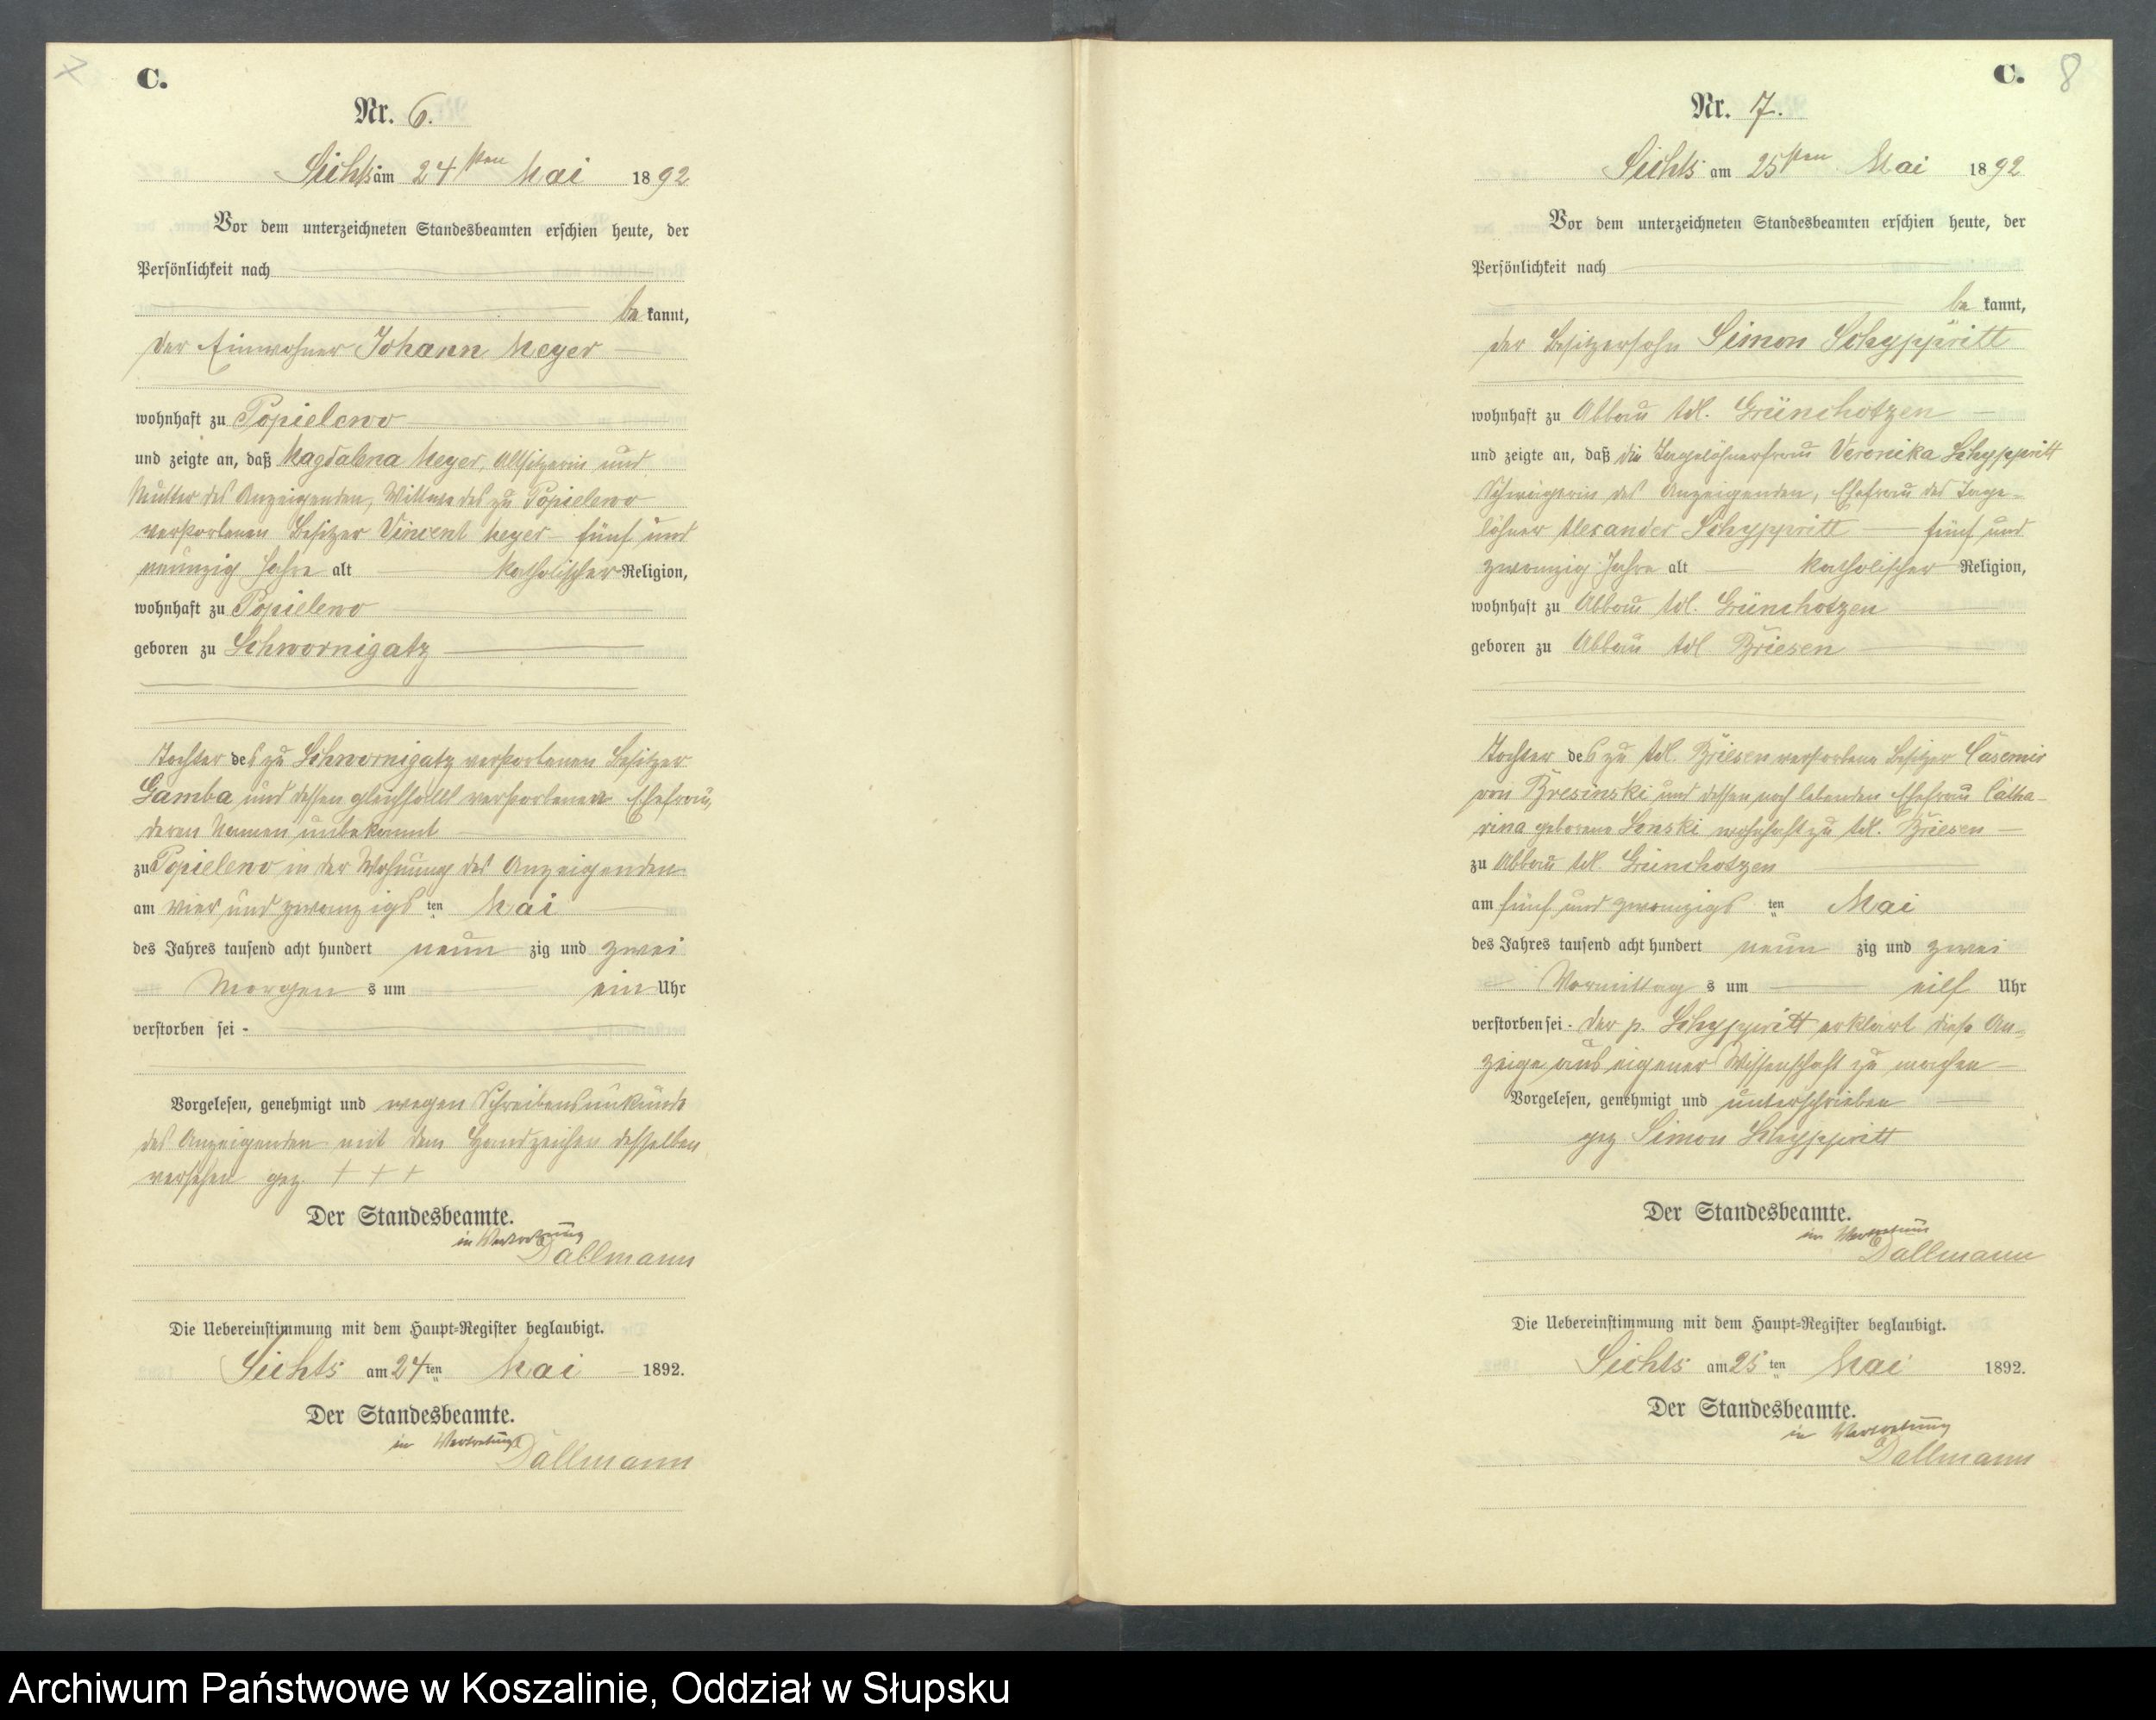 C.
Nr. 6.
Sichts am 24sten Mai 1892
Vor dem unterzeichneten Standesbeamten erschien heute, der
Persönlichkeit nach
be kannt,
der Einwohner Johann Meyer
wohnhaft zu Popielewo
und zeigte an, daß Magdalena Meyer, Altsitzerin und
Mutter des Anzeigenden, Wittwe des zu Popielewo
verstorbenen Besitzer Vincent Meyer - fünf und
neunzig Jahre alt katholischer Religion,
wohnhaft zu Popielewo
geboren zu Schwornigatz
Tochter des zu Schwornigatz verstorbenen Besitzer
Gamba und dessen gleichfalls verstorbenen Ehefrau,
deren Namen unbekannt
zu Popielewo in der Wohnung des Anzeigenden
am vier und zwanzigs ten Mai
des Jahres tausend acht hundert neun zig und zwei
Morgen s um ein Uhr
verstorben sei -
Vorgelesen, genehmigt und wegen Schreibensunkunde
des Anzeigenden mit dem Handzeichen desselben
versehen gez. + + +
Der Standesbeamte.
in Vertretung
Dallmann
Die Uebereinstimmung mit dem Haupt-Register beglaubigt.
Sichts am 24 ten Mai 1892.
Der Standesbeamte.
in Vertretung
Dallmann
C. 8
Nr. 7.
Sichts am 25sten Mai 1892
Vor dem unterzeichneten Standesbeamten erschien heute, der
Persönlichkeit nach
be kannt,
der Besitzersohn Simon Schyppritt
wohnhaft zu Abbau Adl. Grünchotzen
und zeigte an, daß die Tagelöhnerfrau Veronika Schyppritt
Schwägerin des Anzeigenden, Ehefrau des Tage-
löhner Alexander Schyppritt fünf und
zwanzig Jahre alt katholischer Religion,
wohnhaft zu Abbau Adl. Grünchotzen
geboren zu Abbau Adl Briesen
Tochter des zu Adl. Briesen verstorbene Besitzer Casemir
von Bresinski und dessen noch lebenden Ehefrau Catha-
rina geborene Lenski wohnhaft zu Adl. Briesen
zu Abbau Adl. Grünchotzen
am fünf und zwanzigs ten Mai
des Jahres tausend acht hundert neun zig und zwei
Vormittag s um eilf Uhr
verstorben sei - der p. Schyppritt erklärt diese An-
zeige aus eigener Wissenschaft zu machen
Vorgelesen, genehmigt und unterschrieben
gez Simon Schyppritt
Der Standesbeamte.
in Vertretung
Dallmann
Die Uebereinstimmung mit dem Haupt-Register beglaubigt.
Sichts am 25 ten Mai 1892.
Der Standesbeamte.
in Vertretung
Dallmann
Archiwum Państwowe w Koszalinie, Oddział w Słupsku